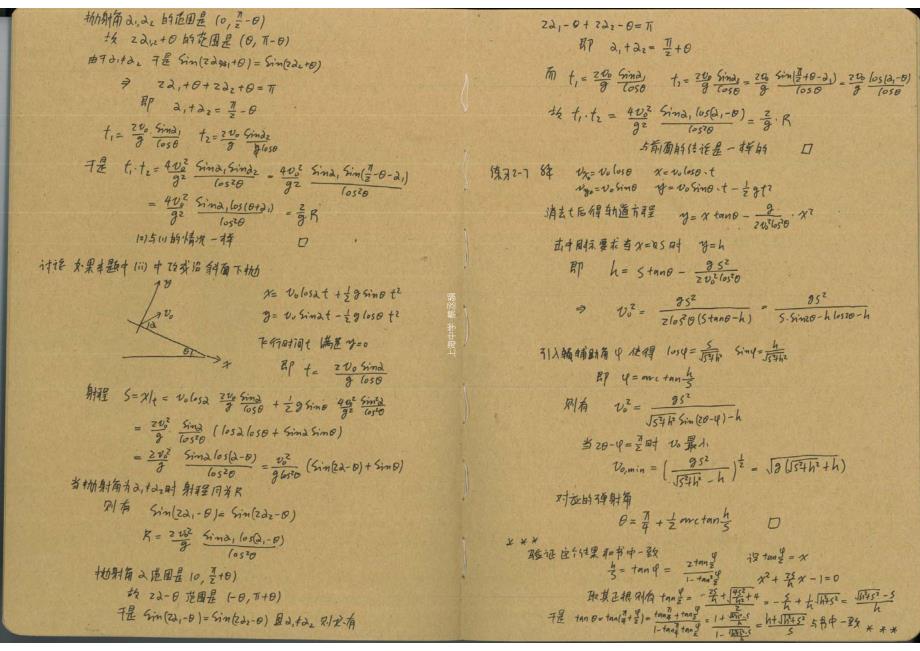 抛射角 α₁,α₂ 的范围是 (0, π/2-θ)
故 2α₁,₂+θ 的范围是 (θ, π-θ)
由于 α₁≠α₂ 于是 Sin(2α₁+θ) = Sin(2α₂+θ)
⇒ 2α₁+θ+2α₂+θ=π
即 α₁+α₂ = π/2-θ
t₁ = 2v₀/g Sinα₁/Cosθ t₂ = 2v₀/g Sinα₂/Cosθ
于是 t₁·t₂ = 4v₀²/g² Sinα₁Sinα₂/Cos²θ = 4v₀²/g² Sinα₁Sin(π/2-θ-α₁)/Cos²θ
= 4v₀²/g² Sinα₁Cos(θ+α₁)/Cos²θ = 2/g R
(ii)与(i)的情况一样 □
讨论 如果本题中 (ii) 中改成沿斜面下抛
y
v₀
α
θ
x
x = v₀Cosα t + 1/2 g Sinθ t²
y = v₀Sinα t - 1/2 g Cosθ t²
下行时间 t 满足 y=0
即 t = 2v₀/g Sinα/Cosθ
射程 S = x|t = v₀Cosα 2v₀/g Sinα/Cosθ + 1/2 g Sinθ 4v₀²/g² Sin²α/Cos²θ
= 2v₀²/g · Sinα/Cos²θ (CosαCosθ + SinαSinθ)
= 2v₀²/g Sinα Cos(α-θ)/Cos²θ = v₀²/gCos²θ (Sin(2α-θ)+Sinθ)
当抛射角为 α₁≠α₂ 时 射程同为 R
则有 Sin(2α₁-θ) = Sin(2α₂-θ)
R = 2v₀²/g Sinα₁Cos(α₁-θ)/Cos²θ
抛射角 α 范围是 (0, π/2+θ)
故 2α-θ 范围是 (-θ, π+θ)
于是 Sin(2α₁-θ) = Sin(2α₂-θ) 且 α₁≠α₂ 则必有
2α₁-θ+2α₂-θ=π
即 α₁+α₂ = π/2+θ
而 t₁ = 2v₀/g Sinα₁/Cosθ t₂ = 2v₀/g Sinα₂/Cosθ = 2v₀/g Sin(π/2+θ-α₁)/Cosθ = 2v₀/g Cos(α₁-θ)/Cosθ
故 t₁·t₂ = 4v₀²/g² Sinα₁Cos(α₁-θ)/Cos²θ = 2/g · R
与前面的结论是一样的 □
练习2-7 解 vₓ₀ = v₀Cosθ x = v₀Cosθ·t
v_y₀ = v₀Sinθ y = v₀Sinθ·t - 1/2 gt²
消去 t 后得轨道方程 y = x tanθ - g/2v₀²Cos²θ · x²
击中目标要求当 x=S 时 y=h
即 h = S tanθ - gS²/2v₀²Cos²θ
⇒ v₀² = gS²/2Cos²θ(Stanθ-h) = gS²/S·Sin2θ-hCos2θ-h
引入辅助角 φ 使得 Cosφ = S/√S²+h² Sinφ = h/√S²+h²
即 φ = arctan h/S
则有 v₀² = gS²/√S²+h² Sin(2θ-φ)-h
当 2θ-φ = π/2 时 v₀ 最小
v₀,min = (gS²/√S²+h² - h)^1/2 = √g(√S²+h²+h)
对应的弹射角
θ = π/4 + 1/2 arctan h/S □
* * * 验证这个结果和书中一致
h/S = tanφ = 2tanφ/2 / 1-tan²φ/2 设 tanφ/2 = x
x² + 2S/h x - 1 = 0
取其正根则有 tanφ/2 = -2S/h + √4S²/h²+4 / 2 = -S/h + 1/h √h²+S² = √h²+S²-S / h
于是 tanθ = tan(π/4+φ/2) = tanπ/4+tanφ/2 / 1-tanπ/4 tanφ/2 = 1+√h²+S²-S/h / 1-√h²+S²-S/h = h+√h²+S² / S 与书中一致 * * *